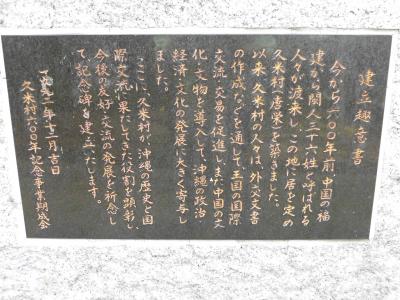 建立趣意書
今から六〇〇年前、中国の福
建から閩人三十六姓と呼ばれる
人々が渡来し、この地に居を定め
久米村(唐営)を築きました。
以来、久米村の人々は、外交文書
の作成などを通して王国の国際
交流、交易を促進し、また中国の文
化、文物を導入して、沖縄の政治・
経済・文化の発展に大きく寄与し
ました。
ここに、久米村が、沖縄の歴史と国
際交流に果たしてきた役割を顕彰し、
今後の友好・交流の発展を祈念し
て、記念碑を建立いたします。
一九九二年十一月吉日
久米村六〇〇年記念事業期成会